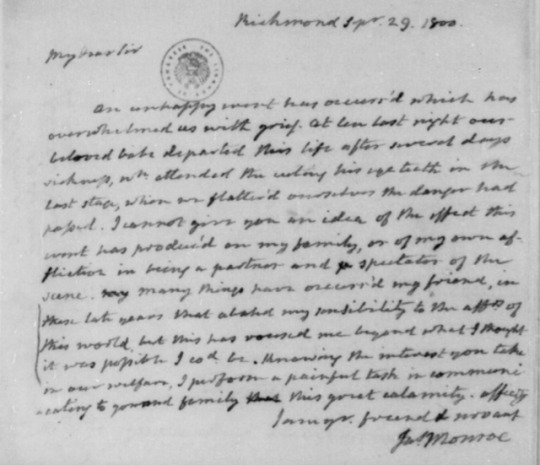 Richmond Sepr. 29. 1800.
My dear Sir
An unhappy event has occurr'd which has
overwhelmed us with grief. At ten last night our
beloved babe departed this life after several days
sickness, wh. attended the cuting his eye teeth in the
last stage, when we flatter'd ourselves the danger had
passed. I cannot give you an idea of the effect this
event has produc'd on my family, or of my own af-
fliction in being a partner and spectator of the
scene. Many things have occurr'd my friend, in
these late years that abated my sensibility to the affrs. of
this world, but this has roused me beyond what I thought
it was possible I cod. be. Knowing the interest you take
in our welfare, I perform a painful task in communi
cating to you and family this great calamity. affecty
I am yr. friend & servant
Jas. Monroe